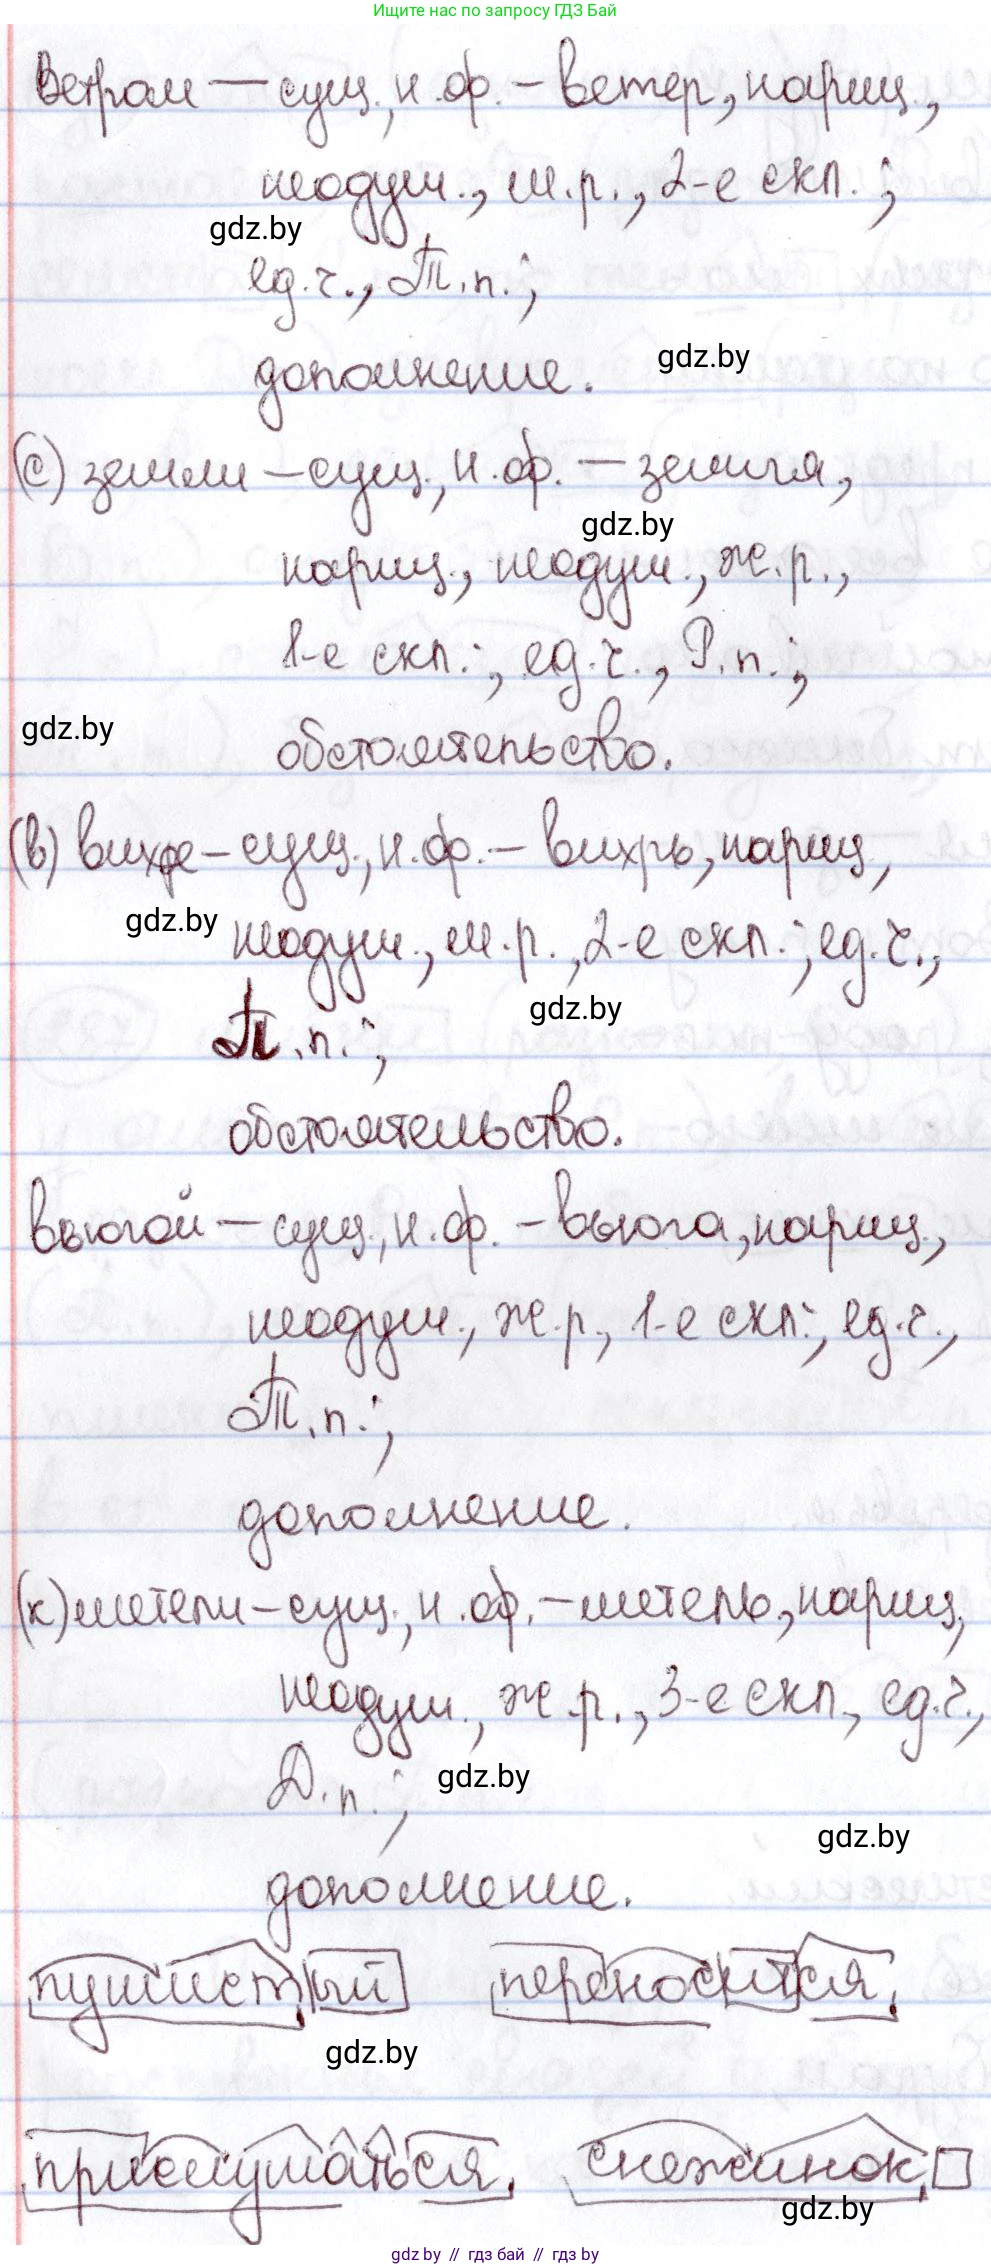 Ищите нас по запросу ГДЗ Бай
Ветром — сущ., н.ф. – ветер, нариц.,
неодуш., м.р., 2-е скл.;
gdz.by
ед.ч., Т.п.;
дополнение.
gdz.by
(с) земли – сущ., н.ф. – земля,
gdz.by
нариц., неодуш., ж.р.,
1-е скл.; ед.ч., Р.п.;
gdz.by
обстоятельство.
(в) вихре – сущ., н.ф. – вихрь, нариц.,
gdz.by
неодуш., м.р., 2-е скл.; ед.ч.,
gdz.by
П.п.;
обстоятельство.
вьюгой – сущ., н.ф. – вьюга, нариц.,
неодуш., ж.р., 1-е скл.; ед.ч.,
Т.п.;
дополнение.
(к) метели – сущ., н.ф. – метель, нариц.,
неодуш., ж.р., 3-е скл., ед.ч.,
Д.п.;
gdz.by
gdz.by
дополнение.
пушистый переносится,
gdz.by
прислушаться, снежинок
gdz.by
gdz.by // гдз бай // гдз by